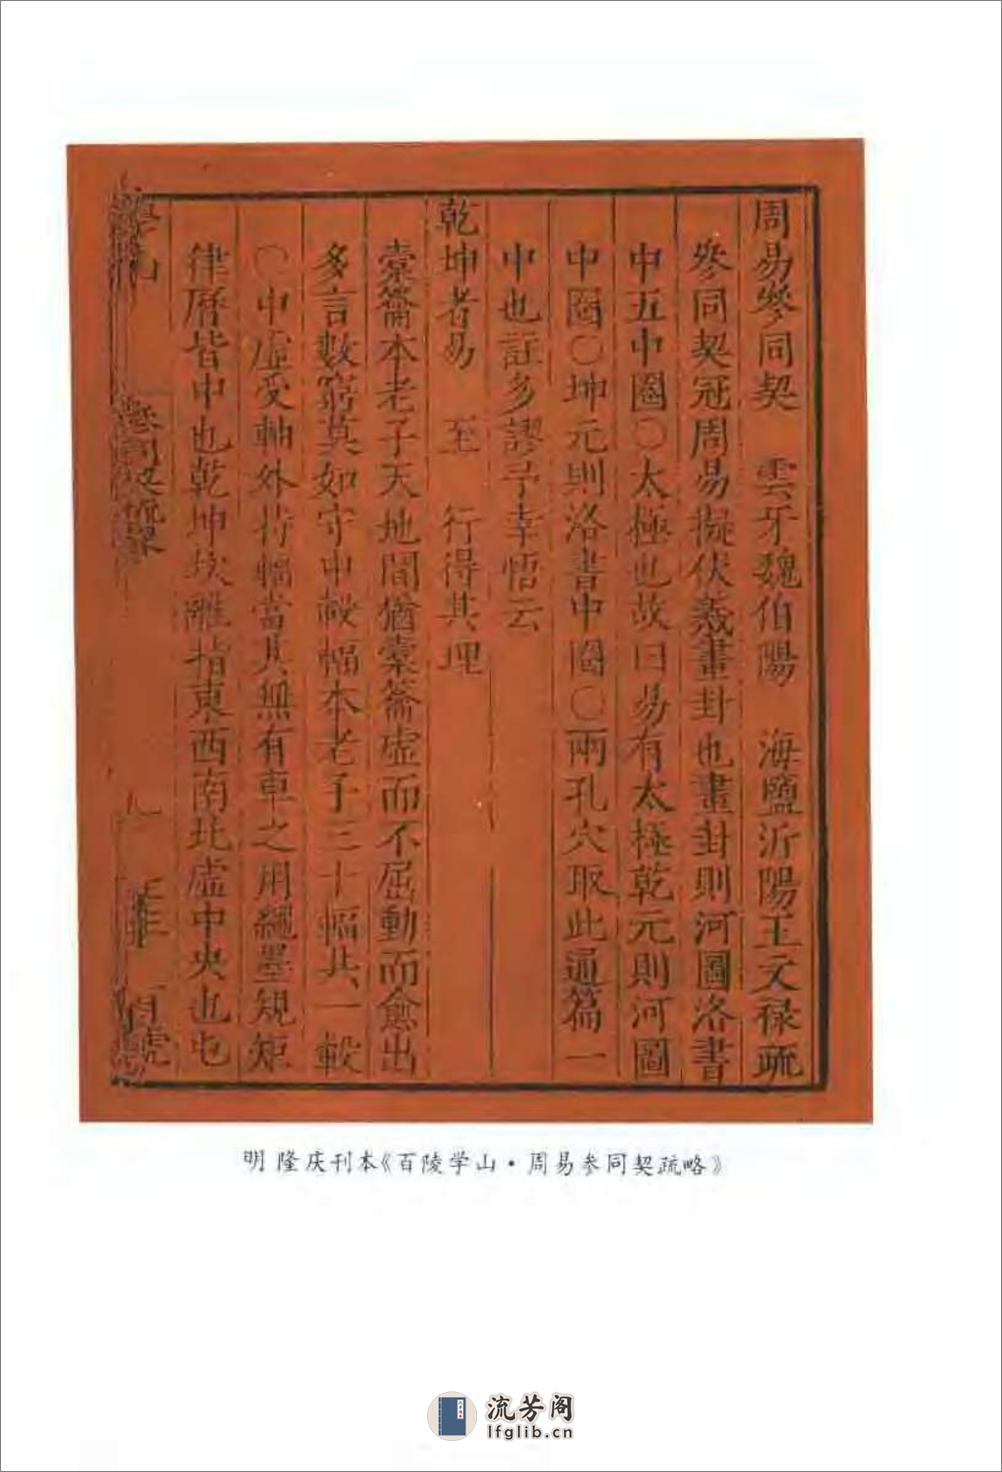 周易參同契　雲牙魏伯陽　海鹽沂陽王文祿疏
參同契冠周易擬伏羲畫卦也畫卦則河圖洛書
中五中圈〇太極也故曰易有太極乾元則河圖
中圈〇坤元則洛書中圈〇兩孔穴取此通篇一
中也註多謬予幸悟云
乾坤者易　至　行得其理
橐籥本老子天地間猶橐籥虛而不屈動而愈出
多言數窮莫如守中轂輻本老子三十輻共一轂
〇中虛受軸外持輻當其無有車之用繩墨規矩
律曆皆中也乾坤坎離指東西南北虛中央也屯
明 隆庆刊本《百陵学山·周易参同契疏略》
流芳阁
lfglib.cn